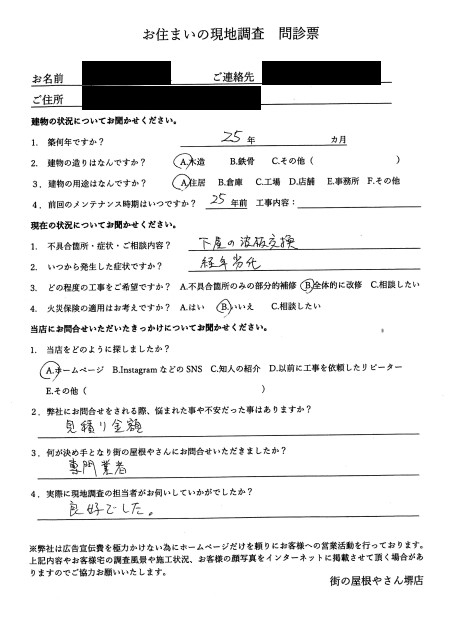 お住まいの現地調査　問診票
お名前　ご連絡先
ご住所
建物の状況についてお聞かせください。
1. 築何年ですか？　25 年　カ月
2. 建物の造りはなんですか？　A.木造　B.鉄骨　C.その他（　）
3．建物の用途はなんですか？　A.住居　B.倉庫　C.工場　D.店舗　E.事務所　F.その他
4．前回のメンテナンス時期はいつですか？　25 年前　工事内容：
現在の状況についてお聞かせください。
1. 不具合箇所・症状・ご相談内容？　下屋の波板交換
2. いつから発生した症状ですか？　経年劣化
3. どの程度の工事をご希望ですか？　A.不具合箇所のみの部分的補修　B.全体的に改修　C.相談したい
4. 火災保険の適用はお考えですか？　A.はい　B.いいえ　C.相談したい
当店にお問合せいただいたきっかけについてお聞かせください。
1. 当店をどのように探しましたか？
A.ホームページ　B.Instagram などの SNS　C.知人の紹介　D.以前に工事を依頼したリピーター
E.その他（　）
2．弊社にお問合せをされる際、悩まれた事や不安だった事はありますか？
見積り金額
3．何が決め手となり街の屋根やさんにお問合せいただきましたか？
専門業者
4．実際に現地調査の担当者がお伺いしていかがでしたか？
良好でした。
※弊社は広告宣伝費を極力かけない為にホームページだけを頼りにお客様への営業活動を行っております。
上記内容やお客様宅の調査風景や施工状況、お客様の顔写真をインターネットに掲載させて頂く場合があ
りますのでご協力お願いいたします。
街の屋根やさん堺店